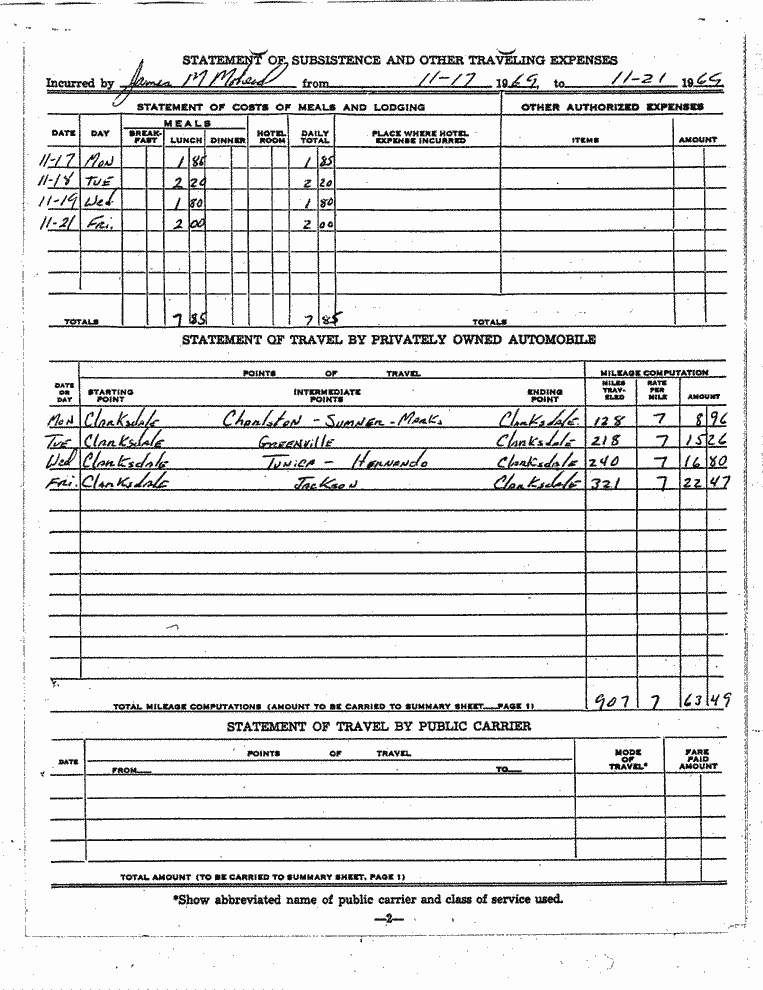 STATEMENT OF SUBSISTENCE AND OTHER TRAVELING EXPENSES
Incurred by James M Mohead from 11-17 1969, to 11-21 1969
STATEMENT OF COSTS OF MEALS AND LODGING OTHER AUTHORIZED EXPENSES
MEALS
DATE DAY BREAK-FAST LUNCH DINNER HOTEL ROOM DAILY TOTAL PLACE WHERE HOTEL EXPENSE INCURRED ITEMS AMOUNT
11-17 Mon 1 85 1 85
11-18 TUE 2 20 2 20
11-19 Wed 1 80 1 80
11-21 Fri. 2 00 2 00
TOTALS 7 85 7 85 TOTALS
STATEMENT OF TRAVEL BY PRIVATELY OWNED AUTOMOBILE
POINTS OF TRAVEL MILEAGE COMPUTATION
DATE OR DAY STARTING POINT INTERMEDIATE POINTS ENDING POINT MILES TRAV-ELED RATE PER MILE AMOUNT
Mon Clarksdale Charlston - Sumner - Marks Clarksdale 128 7 8 96
Tue Clarksdale Greenville Clarksdale 218 7 15 26
Wed Clarksdale Tunica - Hernando Clarksdale 240 7 16 80
Fri. Clarksdale Jackson Clarksdale 321 7 22 47
TOTAL MILEAGE COMPUTATIONS (AMOUNT TO BE CARRIED TO SUMMARY SHEET—PAGE 1) 907 7 63 49
STATEMENT OF TRAVEL BY PUBLIC CARRIER
DATE POINTS OF TRAVEL MODE OF TRAVEL* FARE PAID AMOUNT
FROM— TO—
TOTAL AMOUNT (TO BE CARRIED TO SUMMARY SHEET, PAGE 1)
*Show abbreviated name of public carrier and class of service used.
—2—